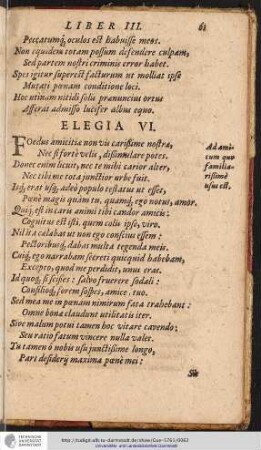 LIBER III. 61
Peccatumq́, oculos est habuisse meos.
Non equidem totam possum defendere culpam,
Sed partem nostri criminis error habet.
Spes igitur superest facturum ut molliat ipse
Mutati pœnam conditione loci.
Hoc utinam nitidi solis prænuncius ortus
Afferat admisso lucifer albus equo.
ELEGIA VI.
FOedus amicitiæ non vis carissime nostræ,
Nec si fortè velis, dissimulare potes.
Donec enim licuit, nec te mihi carior alter,
Nec tibi me tota junctior urbe fuit.
Isq́, erat usq́, adeò populo testatus ut esset,
Penè magis quàm tu, quamq́, ego notus, amor.
Quiq́, est in caris animi tibi candor amicis:
Cognitus est isti, quem colis ipse, viro.
Nil ita celabas ut non ego conscius essem:
Pectoribusq́, dabas multa tegenda meis.
Cuiq́, ego narrabam secreti quicquid habebam,
Excepto, quod me perdidit, unus eras.
Id quoq́, si scisses: salvo fruerere sodali:
Consilioq́, forem sospes, amice, tuo.
Sed mea me in pœnam nimirum fata trahebant:
Omne bonæ claudunt utilitatis iter.
Sive malum potui tamen hoc vitare cavendo:
Seu ratio fatum vincere nulla valet.
Tu tamen ô nobis usu junctissime longo,
Pars desiderij maxima penè mei:
Sis
Ad ami-
cum quo
familia-
rissimè
usus est.
http://tudigit.ulb.tu-darmstadt.de/show/Gue-5765/0063